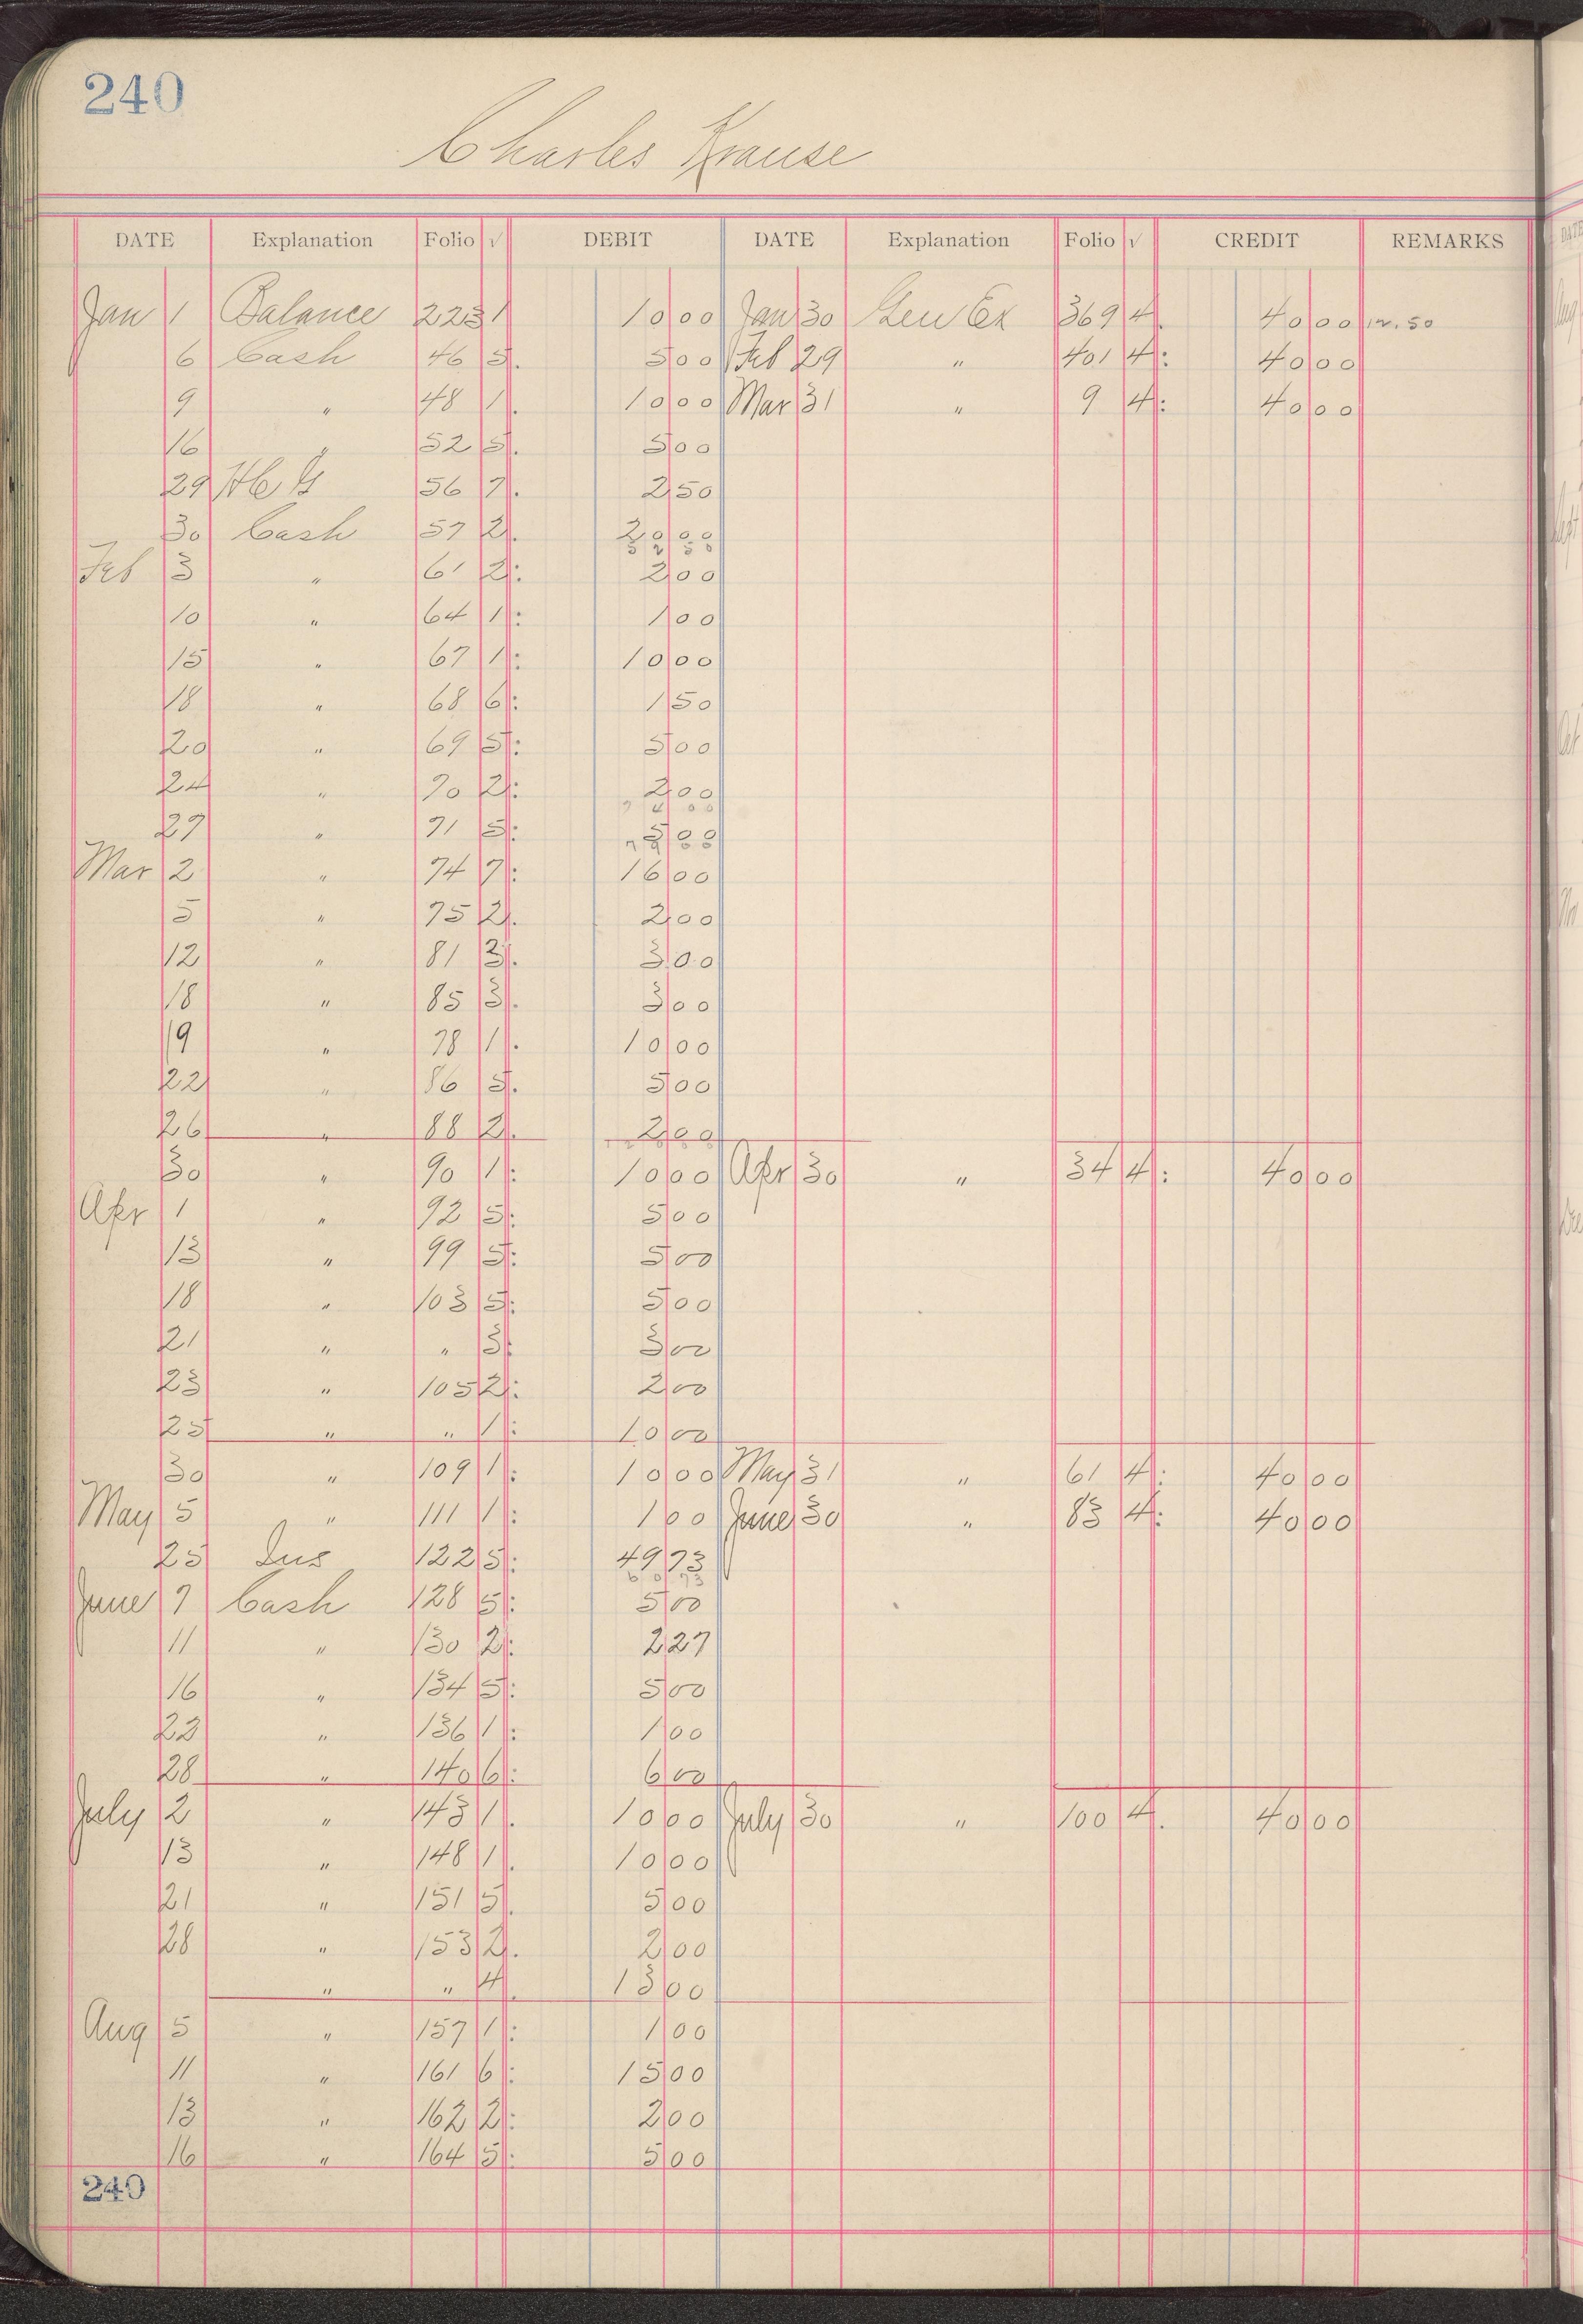 240
Charles Krause
DATE Explanation Folio √ DEBIT DATE Explanation Folio √ CREDIT REMARKS
Jan 1 Balance 223 1 10 00 Jan 30 Gen Ex 369 4 40 00 12.50
6 Cash 46 5 5 00 Feb 29 " 401 4 40 00
9 " 48 1 10 00 Mar 31 " 9 4 40 00
16 " 52 5 5 00
29 56 7 2 50
30 Cash 57 2 20 00
52 50
Feb 3 " 61 2 2 00
10 " 64 1 1 00
15 " 67 1 10 00
18 " 68 6 1 50
20 " 69 5 5 00
24 " 70 2 2 00
27 " 71 5 5 00
Mar 2 " 74 7 16 00
5 " 75 2 2 00
12 " 81 3 3 00
18 " 85 3 3 00
19 " 78 1 10 00
22 " 86 5 5 00
26 " 88 2 2 00
30 " 90 1 10 00 Apr 30 " 34 4 40 00
Apr 1 " 92 5 5 00
13 " 99 5 5 00
18 " 103 5 5 00
21 " " 3 3 00
23 " 105 2 2 00
25 " " 1 10 00
30 " 109 1 10 00 May 31 " 61 4 40 00
May 5 " 111 1 1 00 June 30 " 83 4 40 00
25 Ins 122 5 49 73
60 73
June 7 Cash 128 5 5 00
11 " 130 2 2 27
16 " 134 5 5 00
22 " 136 1 1 00
28 " 140 6 6 00
July 2 " 143 1 10 00 July 30 " 100 4 40 00
13 " 148 1 10 00
21 " 151 5 5 00
28 " 153 2 2 00
" " 4 13 00
Aug 5 " 157 1 1 00
11 " 161 6 15 00
13 " 162 2 2 00
16 " 164 5 5 00
240